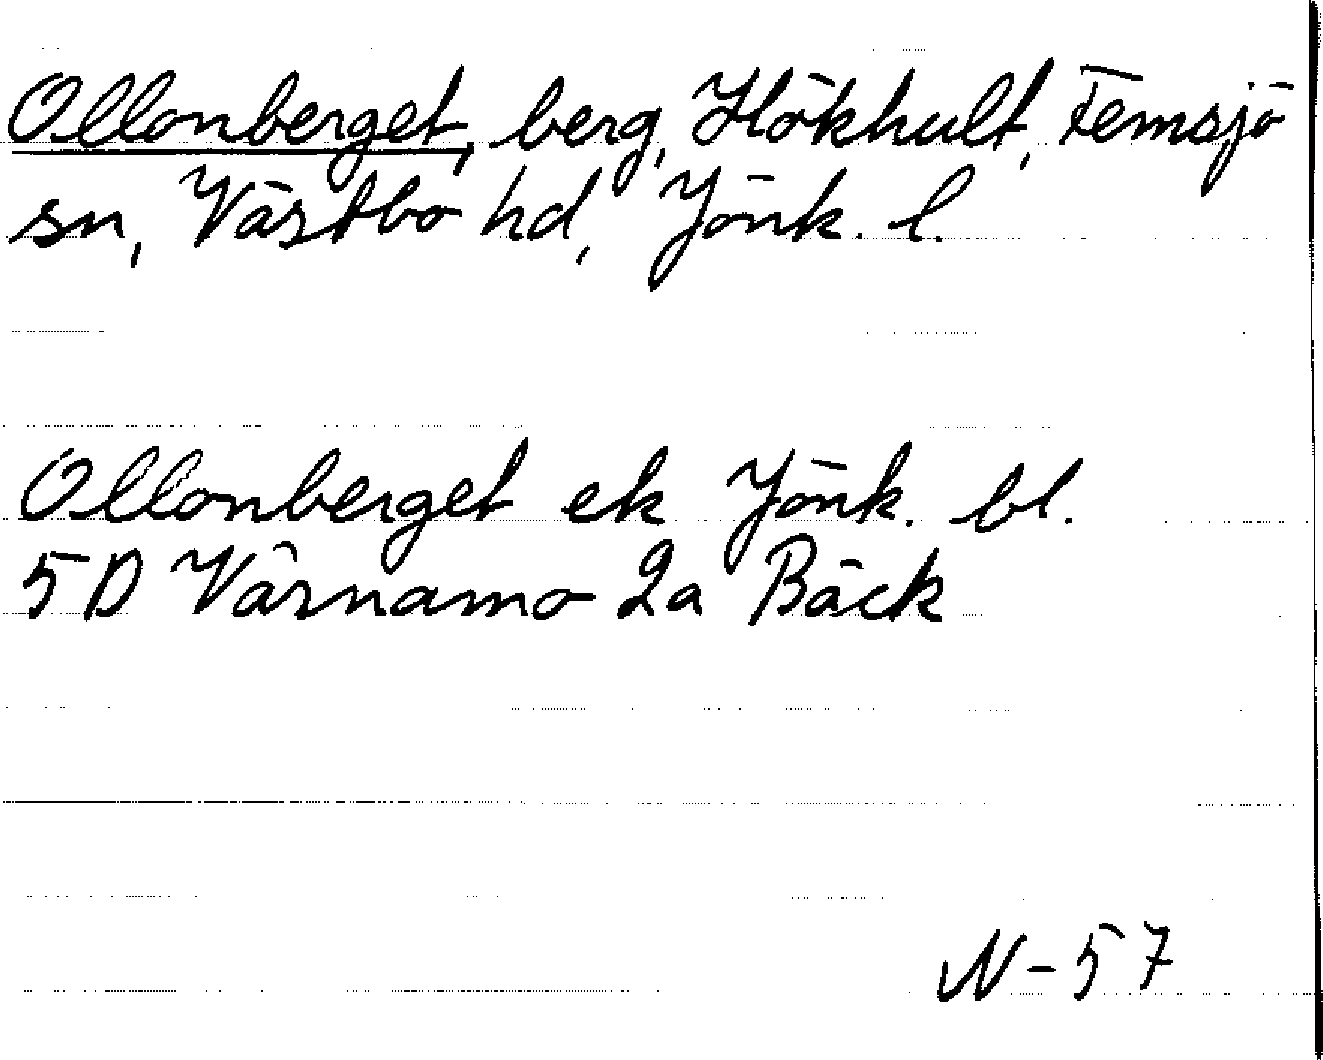 Ollonberget, berg, Hökhult, Femsjö
sn, Västbo hd, Jönk. l.
Ollonberget ek Jönk. bl.
5D Värnamo 2a Bäck
N-57